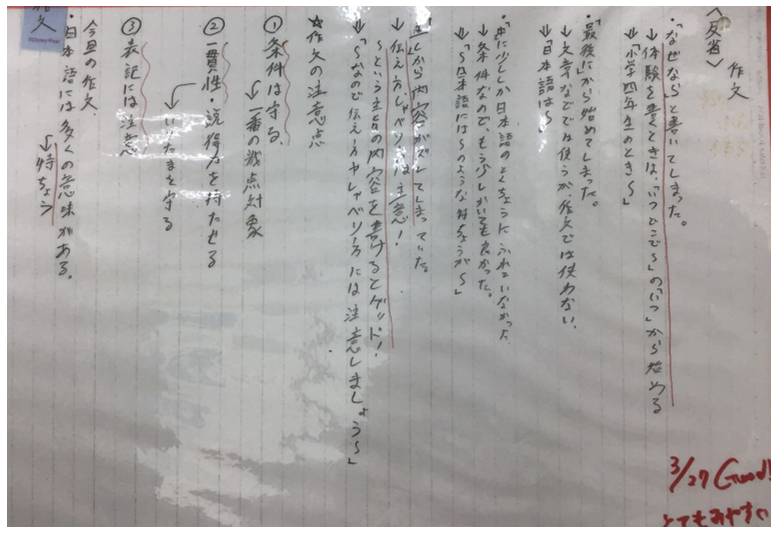 作文
〈反省〉
・「なぜなら」と書いてしまった。
→体験を書くときは、「いつどこで〜」の「いつ」から始める
「小学四年生のとき〜」
・「最後に」から始めてしまった。
→文章などでは使うが、作文では使わない。
→「日本語は〜」
・中に少ししか日本語のとくちょうにふれていなかった。
→条件なので、もう少しかいても良かった。
→「〜日本語には〜のような特ちょうが〜」
から内容がズレてしまっていた。
→伝え方、しゃべり方は注意!
〜という主旨の内容を書けるとグッド!
→「〜なので伝え方やしゃべり方には注意しましょう〜」
☆作文の注意点
①条件は守る。
→一番の減点対象
②一貫性・説得力を持たせる
→を守る
③表記には注意
今日の作文
・日本語には多くの意味がある。
→特ちょう
作文
3/27 Good!
とてもみやすい